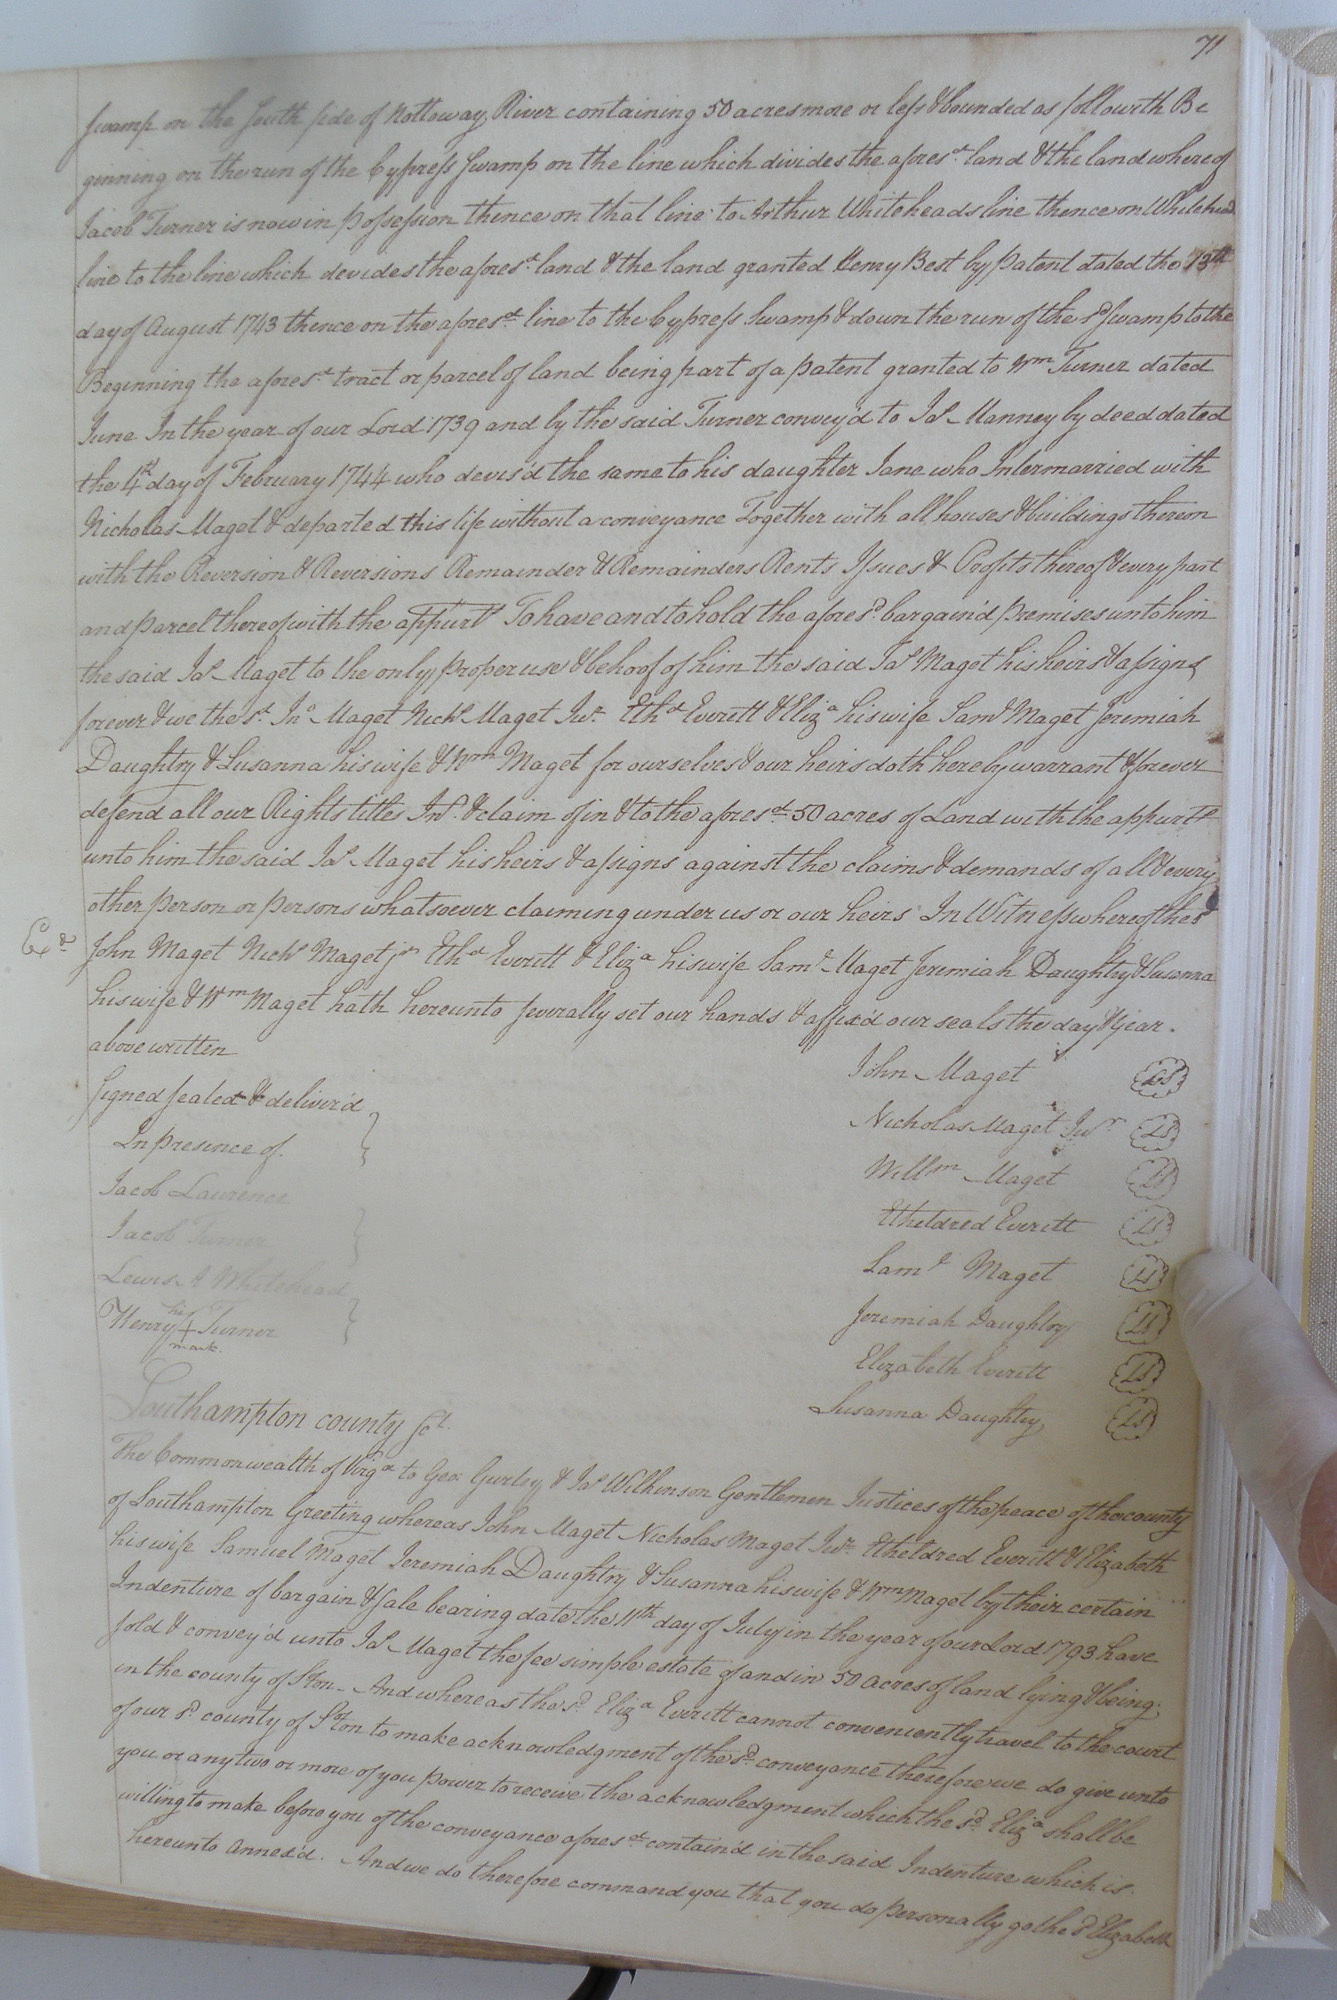 71
swamp on the south side of Nottoway River containing 50 acres more or less & bounded as followith Be
ginning on the run of the Cypress Swamp on the line which divides the afores.d land & the land whereof
Jacob Turner is now in possession thence on that line to Arthur Whiteheads line thence on Whitehead
line to the line which devides the afores.d land & the land granted Henry Best by patent dated the 13th
day of August 1743 thence on the afores.d line to the Cypress Swamp & down the run of the s.d swamp to the
Beginning the afores.d tract or parcel of land being part of a patent granted to Wm Turner dated
June In the year of our Lord 1739 and by the said Turner convey'd to Ja.s Manney by deed dated
the 4th day of February 1744 who devis'd the same to his daughter Jane who Intermarried with
Nicholas Maget & departed this life without a conveyance Together with all houses & buildings thereon
with the Reversion & Reversions Remainder & Remainders Rents Issues & Profits thereof & every part
and parcel thereof with the appurts To have and to hold the afores.d bargain'd premises unto him
the said Ja.s Maget to the only proper use & behoof of him the said Ja.s Maget his heirs & assigns
forever & we the s.d Jno Maget Nich.s Maget Jur. Eth.d Everett & Eliz.a his wife Sam.l Maget Jeremiah
Daughtry & Susanna his wife & Wm Maget for ourselves & our heirs doth hereby warrant & forever
defend all our Rights titles Int. & claim of in & to the afores.d 50 acres of Land with the appurts
unto him the said Ja.s Maget his heirs & assigns against the claims & demands of all & every
other person or persons whatsoever claiming under us or our heirs In Witness whereof the s.d
Ex.d
John Maget Nich.s Maget jr Eth.d Everitt & Eliz.a his wife Sam.l Maget Jeremiah Daughtry & Susanna
his wife & Wm Maget hath hereunto severally set our hands & affix'd our seals the day & year
above written
Signed sealed & deliver'd
In presence of
Jacob Laurence
Jacob Turner
Lewis A Whitehead
Henry his Turner
mark
John Maget LS
Nicholas Maget Jur LS
Willm Maget LS
Etheldred Everitt LS
Sam.l Maget LS
Jeremiah Daughtry LS
Elizabeth Everitt LS
Susanna Daughtry LS
Southampton county Sct.
The Commonwealth of Virg.a to Geo: Gurley & Ja.s Wilkinson Gentlemen Justices of the peace of the county
of Southampton Greeting whereas John Maget Nicholas Maget Jur. Etheldred Everitt & Elizabeth
his wife Samuel Maget Jeremiah Daughtry & Susanna his wife & Wm Maget by their certain
Indenture of bargain & sale bearing date the 11th day of July in the year of our Lord 1793 have
sold & convey'd unto Ja.s Maget the fee simple estate of and in 50 acres of land lying & being
in the county of S'ton And whereas the s.d Eliz.a Everitt cannot conveniently travel to the court
of our s.d county of S'ton to make acknowledgment of the s.d conveyance therefore we do give unto
you or any two or more of you power to receive the acknowledgment which the s.d Eliz.a shall be
willing to make before you of the conveyance afores.d contain'd in the said Indenture which is
hereunto annex'd. And we do therefore command you that you do personally go the s.d Elizabeth